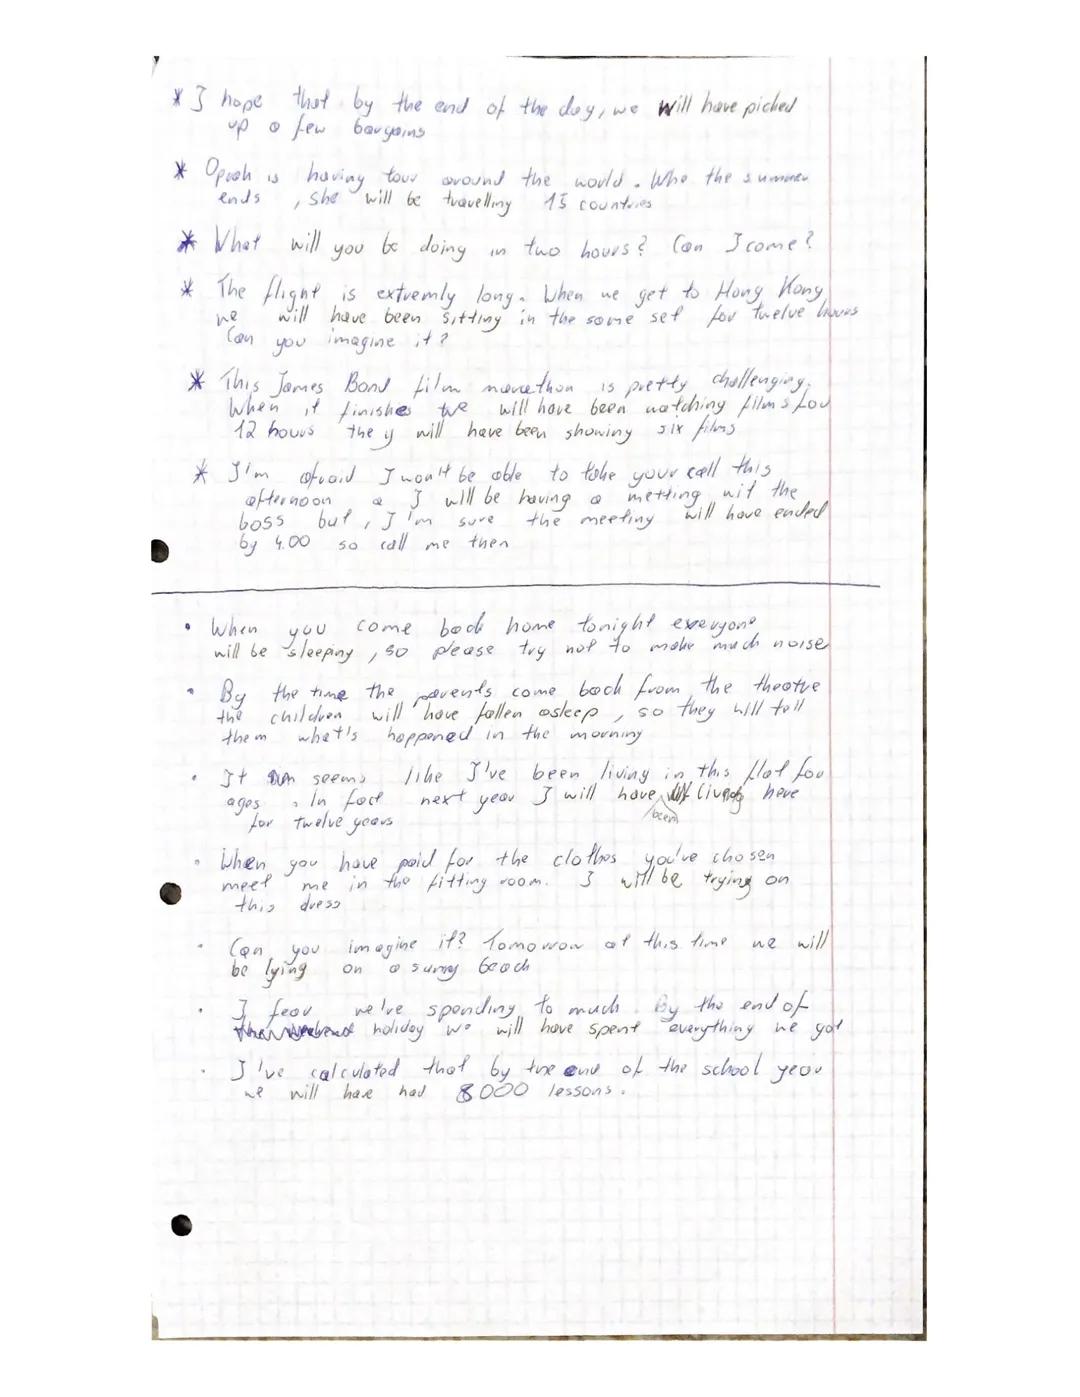 * I hope that by the end of the day, we will have picked
up a few bargains
* Oprah is having tour around the world. Whe the summer
ends, she will be travelling 15 countries
* What will you be doing in two hours? Can I come?
* The flight is extremly long. When we get to Hong Kong
we will have been sitting in the same set for twelve hours
Can you imagine it?
* This James Bond film marathon is pretty challenging.
When it finishes we will have been watching films for
12 hours they will have been showing six films
* I'm afraid I won't be able to take your call this
afternoon a I will be having a metting wit the
boss but, I'm sure the meeting will have ended
by 4.00 so call me then
• When you come back home tonight everyone
will be sleeping, so please try not to make much noise
• By the time the parents come back from the theatre
the children will have fallen asleep, so they will tell
them what's happened in the morning
• It seems like I've been living in this flat for
ages. In fact next year I will have been living here
for twelve years
• When you have paid for the clothes you've chosen
meet me in the fitting room. I will be trying on
this dress
• Can you imagine it? Tomorrow at this time we will
be lying on a sunny beach
• I fear we've spending to much. By the end of
holiday we will have spent everything we got
• I've calculated that by the end of the school year
we will have had 8000 lessons.